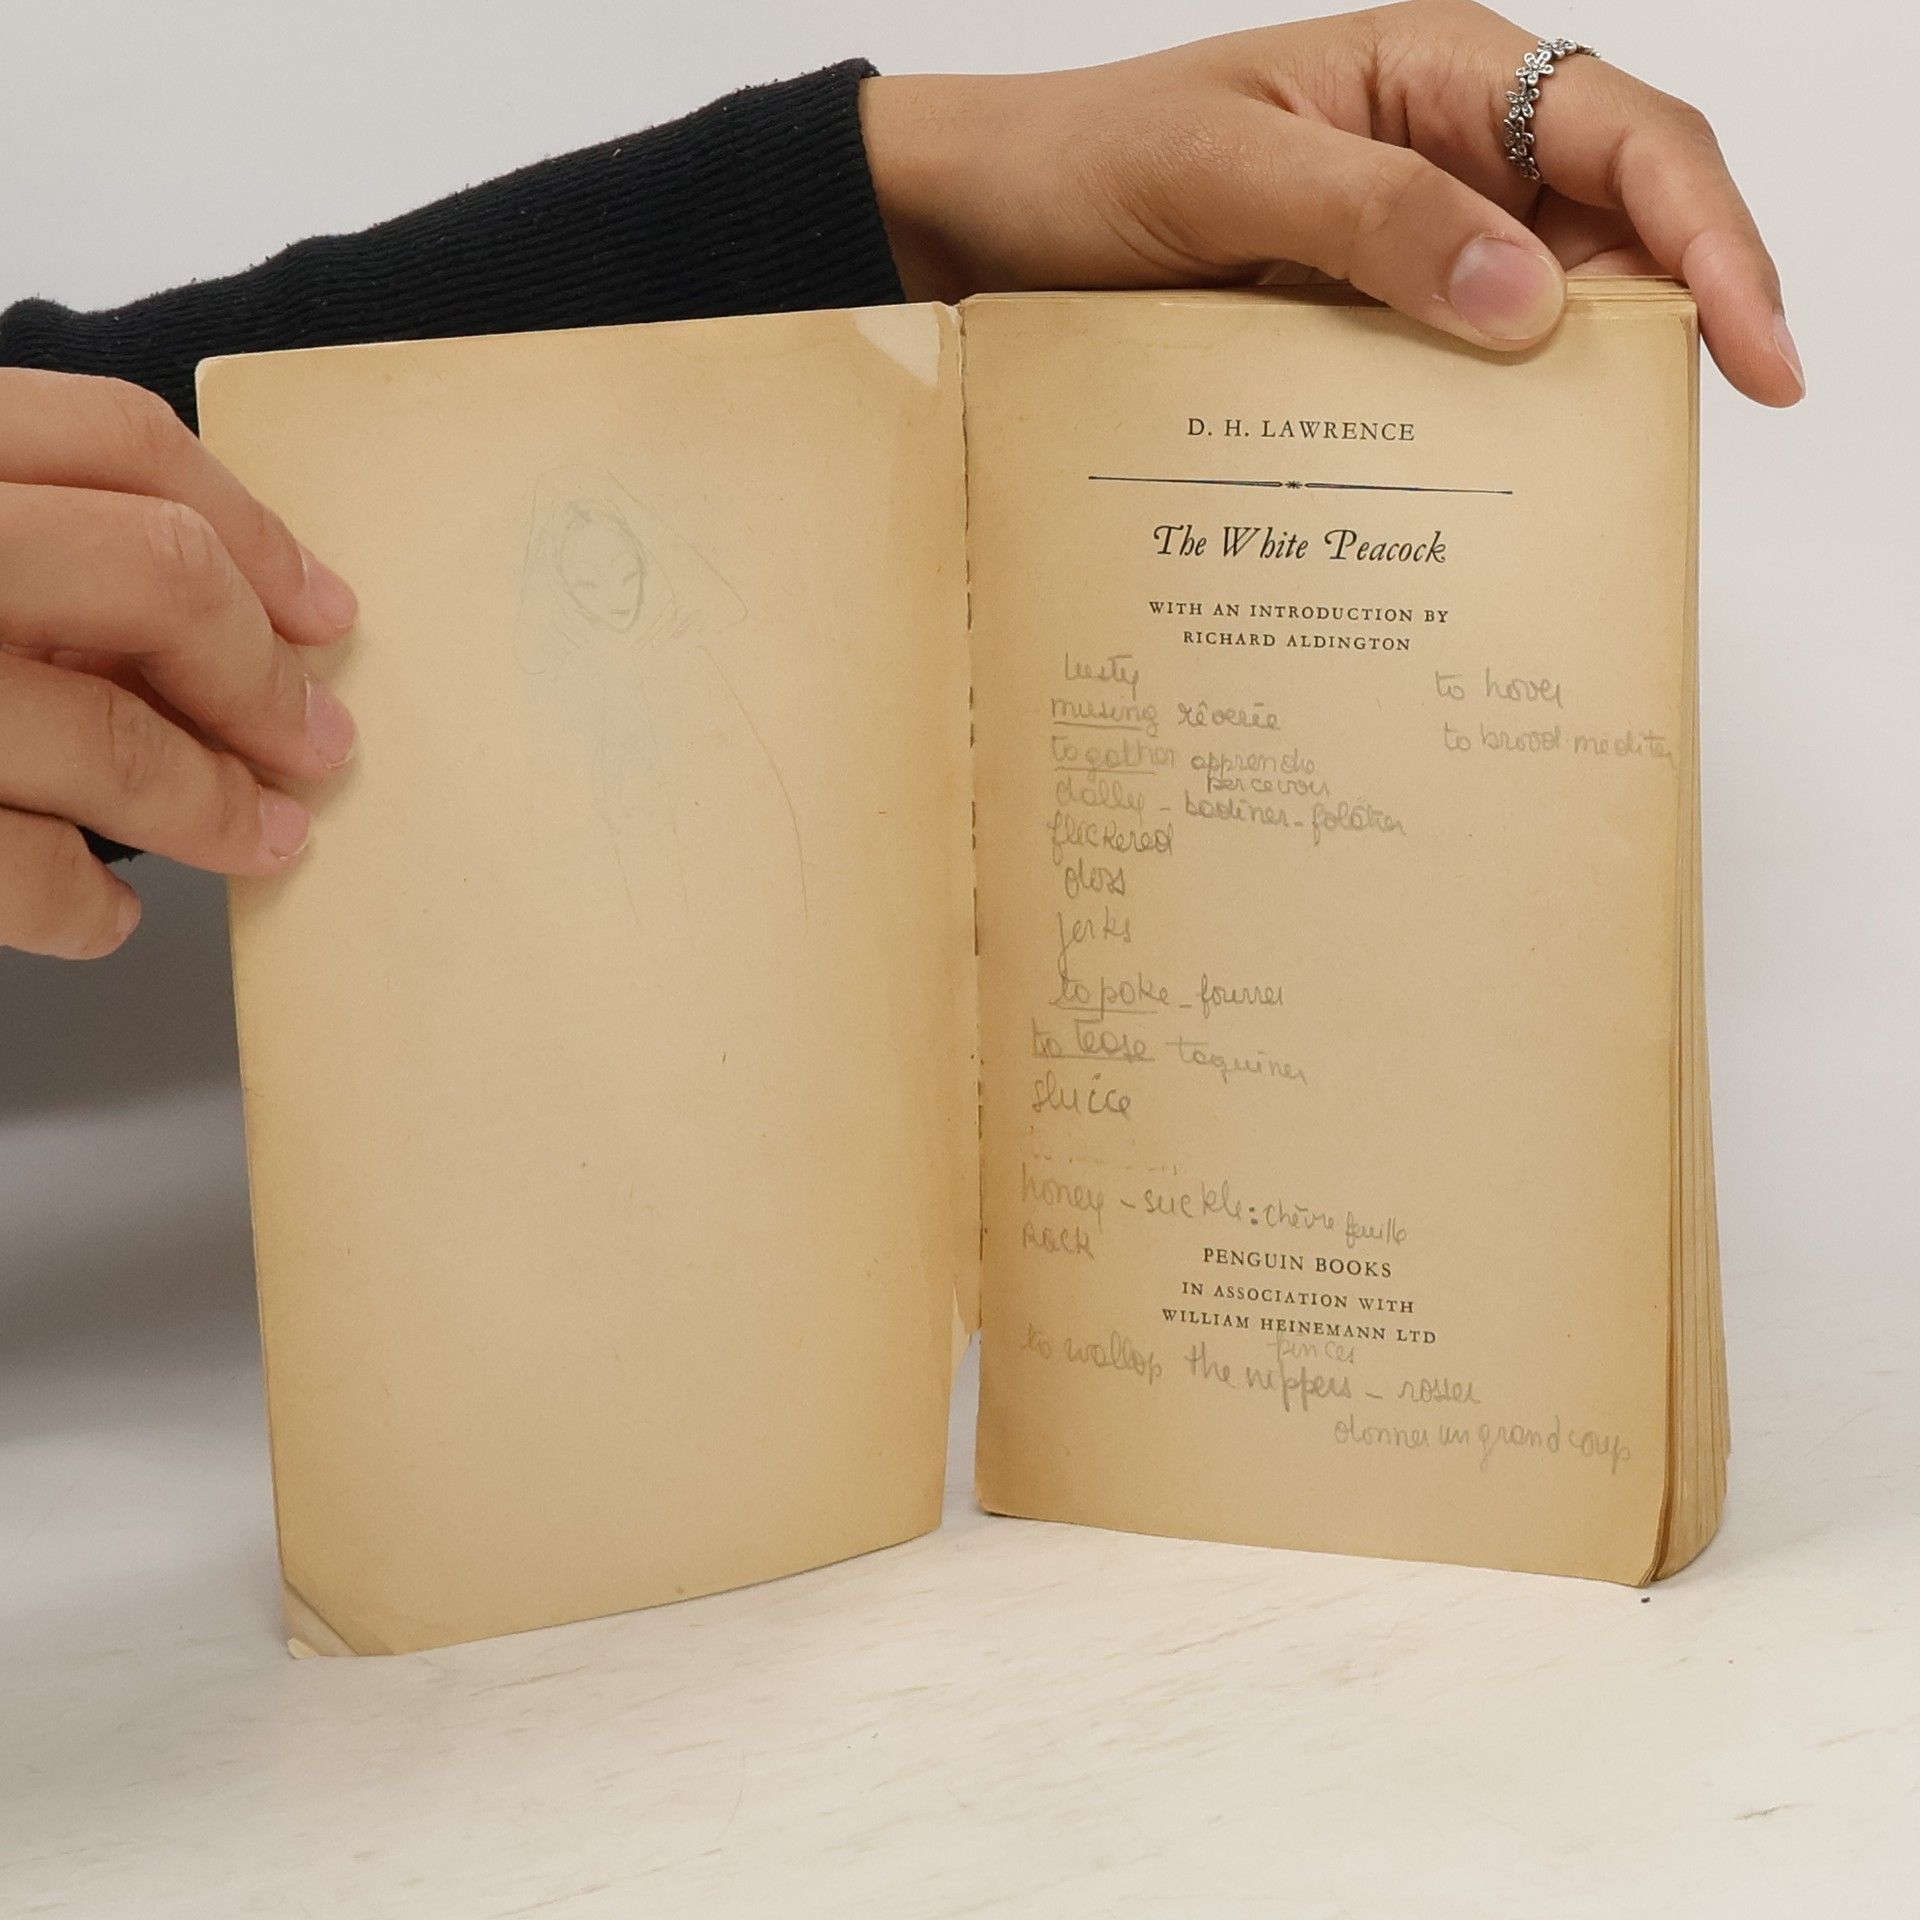 D. H. LAWRENCE
The White Peacock
WITH AN INTRODUCTION BY
RICHARD ALDINGTON
lusty
to hover
musing rêverie
to brood méditer
to gather apprendre
percevoir
dally - badiner - folâtrer
flickered
jerks
to poke - fourrer
to tease taquiner
sluice
honey - suckle : chèvrefeuille
PENGUIN BOOKS
IN ASSOCIATION WITH
WILLIAM HEINEMANN LTD
pinces
to wallop the nippers - rosser
donner un grand coup